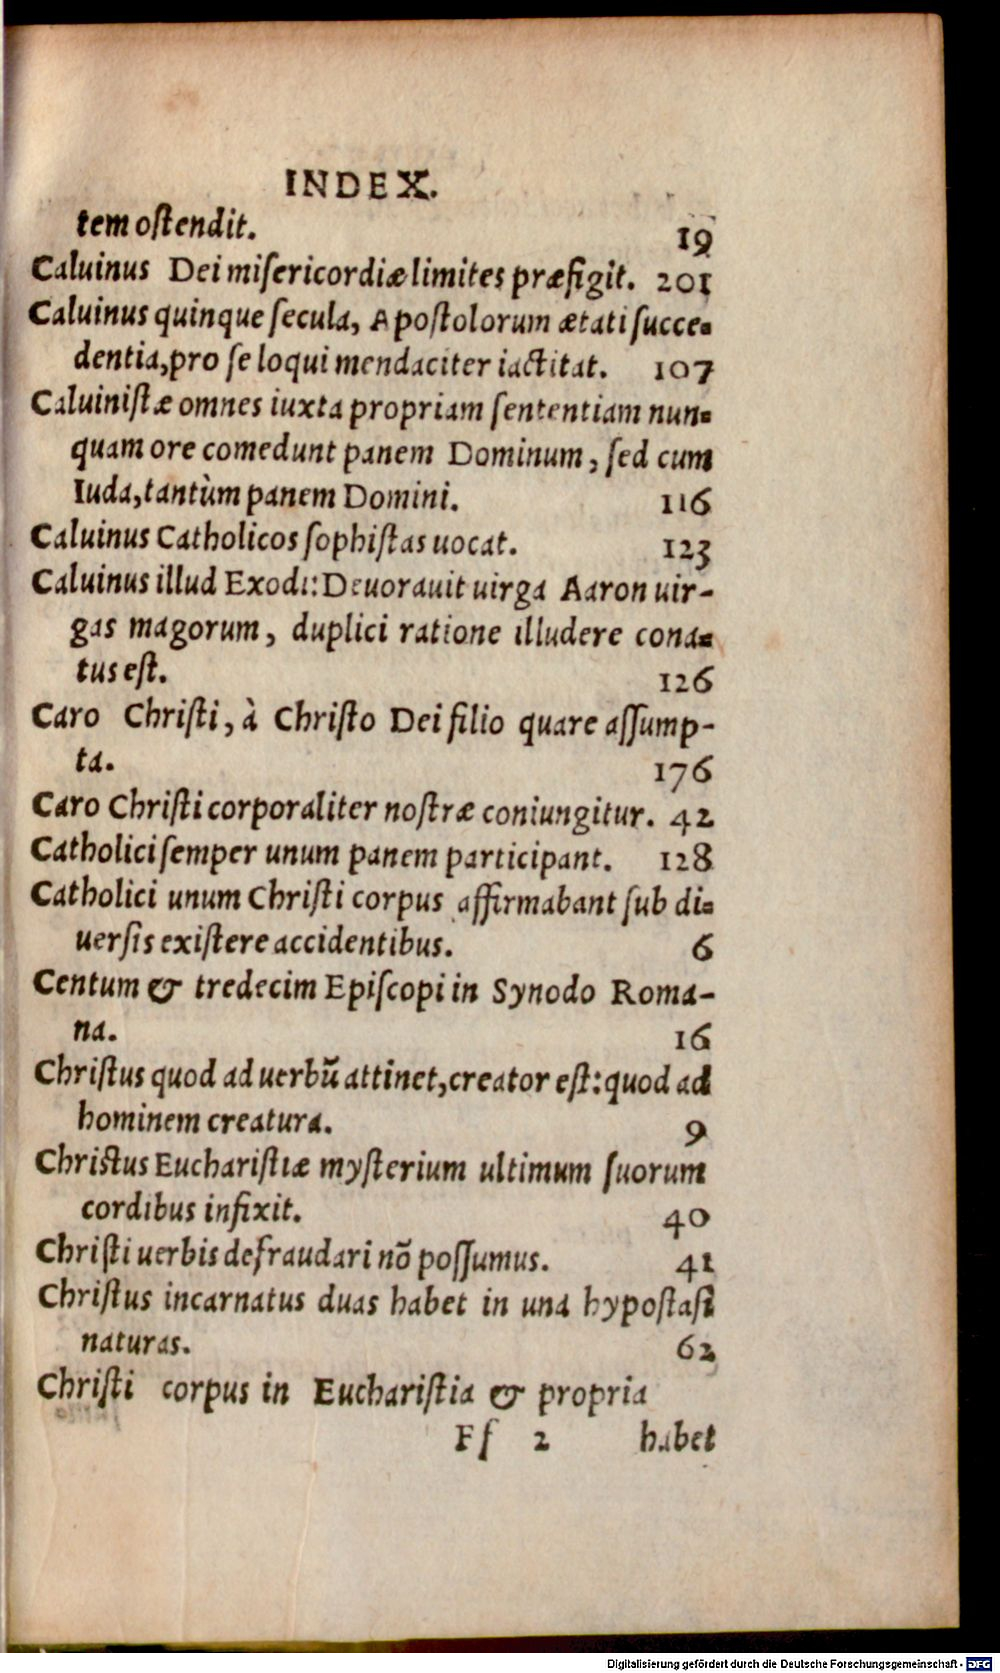 INDEX.
tem ostendit. 19
Caluinus Dei misericordiæ limites præfigit. 201
Caluinus quinque secula, Apostolorum ætati succe-
dentia, pro se loqui mendaciter iactitat. 107
Caluinistæ omnes iuxta propriam sententiam nun-
quam ore comedunt panem Dominum, sed cum
Iuda, tantùm panem Domini. 116
Caluinus Catholicos sophistas uocat. 123
Caluinus illud Exodi: Deuorauit uirga Aaron uir-
gas magorum, duplici ratione illudere cona-
tus est. 126
Caro Christi, à Christo Dei filio quare assump-
ta. 176
Caro Christi corporaliter nostræ coniungitur. 42
Catholici semper unum panem participant. 128
Catholici unum Christi corpus affirmabant sub di-
uersis existere accidentibus. 6
Centum & tredecim Episcopi in Synodo Roma-
na. 16
Christus quod ad uerbū attinet, creator est: quod ad
hominem creatura. 9
Christus Eucharistiæ mysterium ultimum suorum
cordibus infixit. 40
Christi uerbis defraudari nõ possumus. 41
Christus incarnatus duas habet in una hypostasi
naturas. 62
Christi corpus in Eucharistia & propria
Ff 2 habet
Digitalisierung gefördert durch die Deutsche Forschungsgemeinschaft - DFG